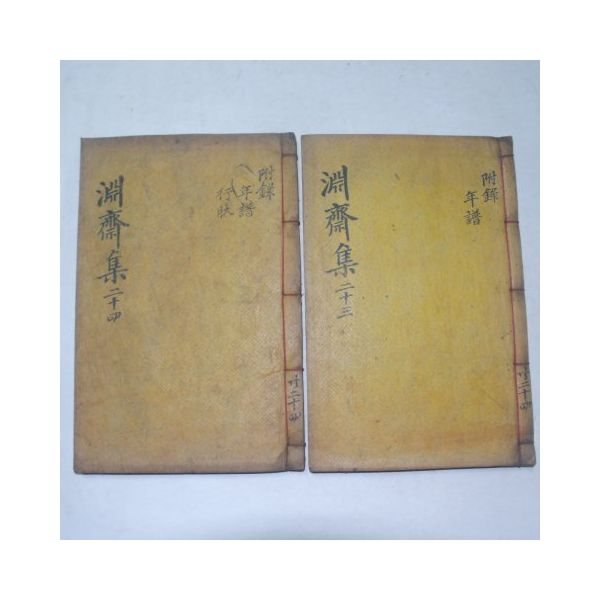 附錄
年譜
淵齋集二十三
共二十四
附錄
年譜
行狀
淵齋集二十四
共二十四